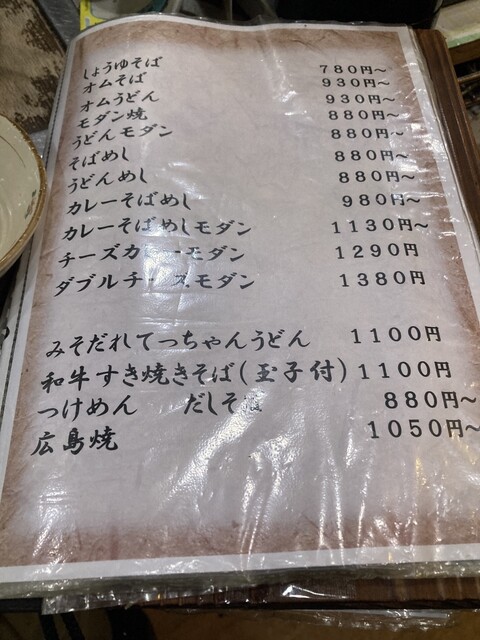 しょうゆそば 780円～
オムそば 930円～
オムうどん 930円～
モダン焼 880円～
うどんモダン 880円～
そばめし 880円～
うどんめし 880円～
カレーそばめし 980円～
カレーそばめしモダン 1130円～
チーズカレーモダン 1290円
ダブルチーズモダン 1380円
みそだれてっちゃんうどん 1100円
和牛すき焼きそば(玉子付) 1100円
つけめん だしそば 880円～
広島焼 1050円～